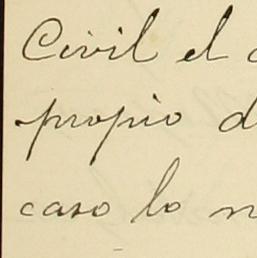 Civil el
propio
caso lo